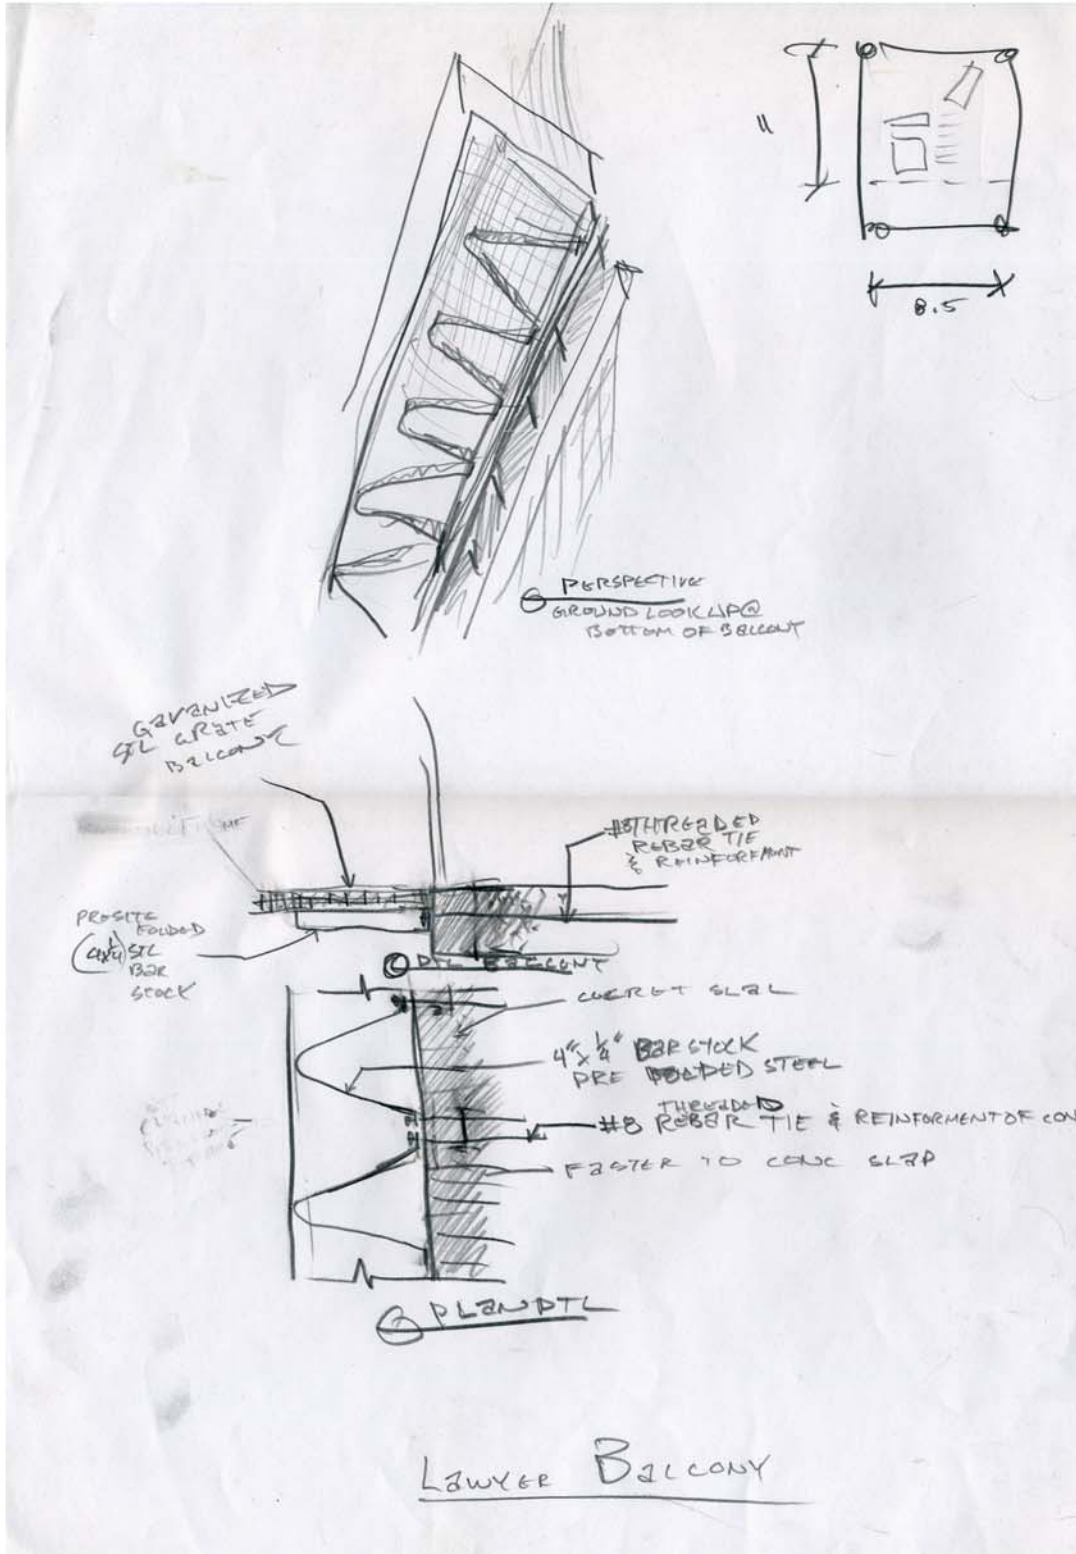 11
8.5
PERSPECTIVE
GROUND LOOK UP @
BOTTOM OF BALCONY
GAVANIZED
STL GRATE
BALCONY
#8 THREADED
REBAR TIE
& REINFOREMENT
FOLDED
(4x¼) STL
BAR
STOCK
DTL BALCONY
4" x ¼" BAR STOCK
PRE FOLDED STEEL
THREADED
#8 REBAR TIE & REINFORMENT OF CON
FASTER TO CONC SLAP
PLAN DTL
LAWYER BALCONY